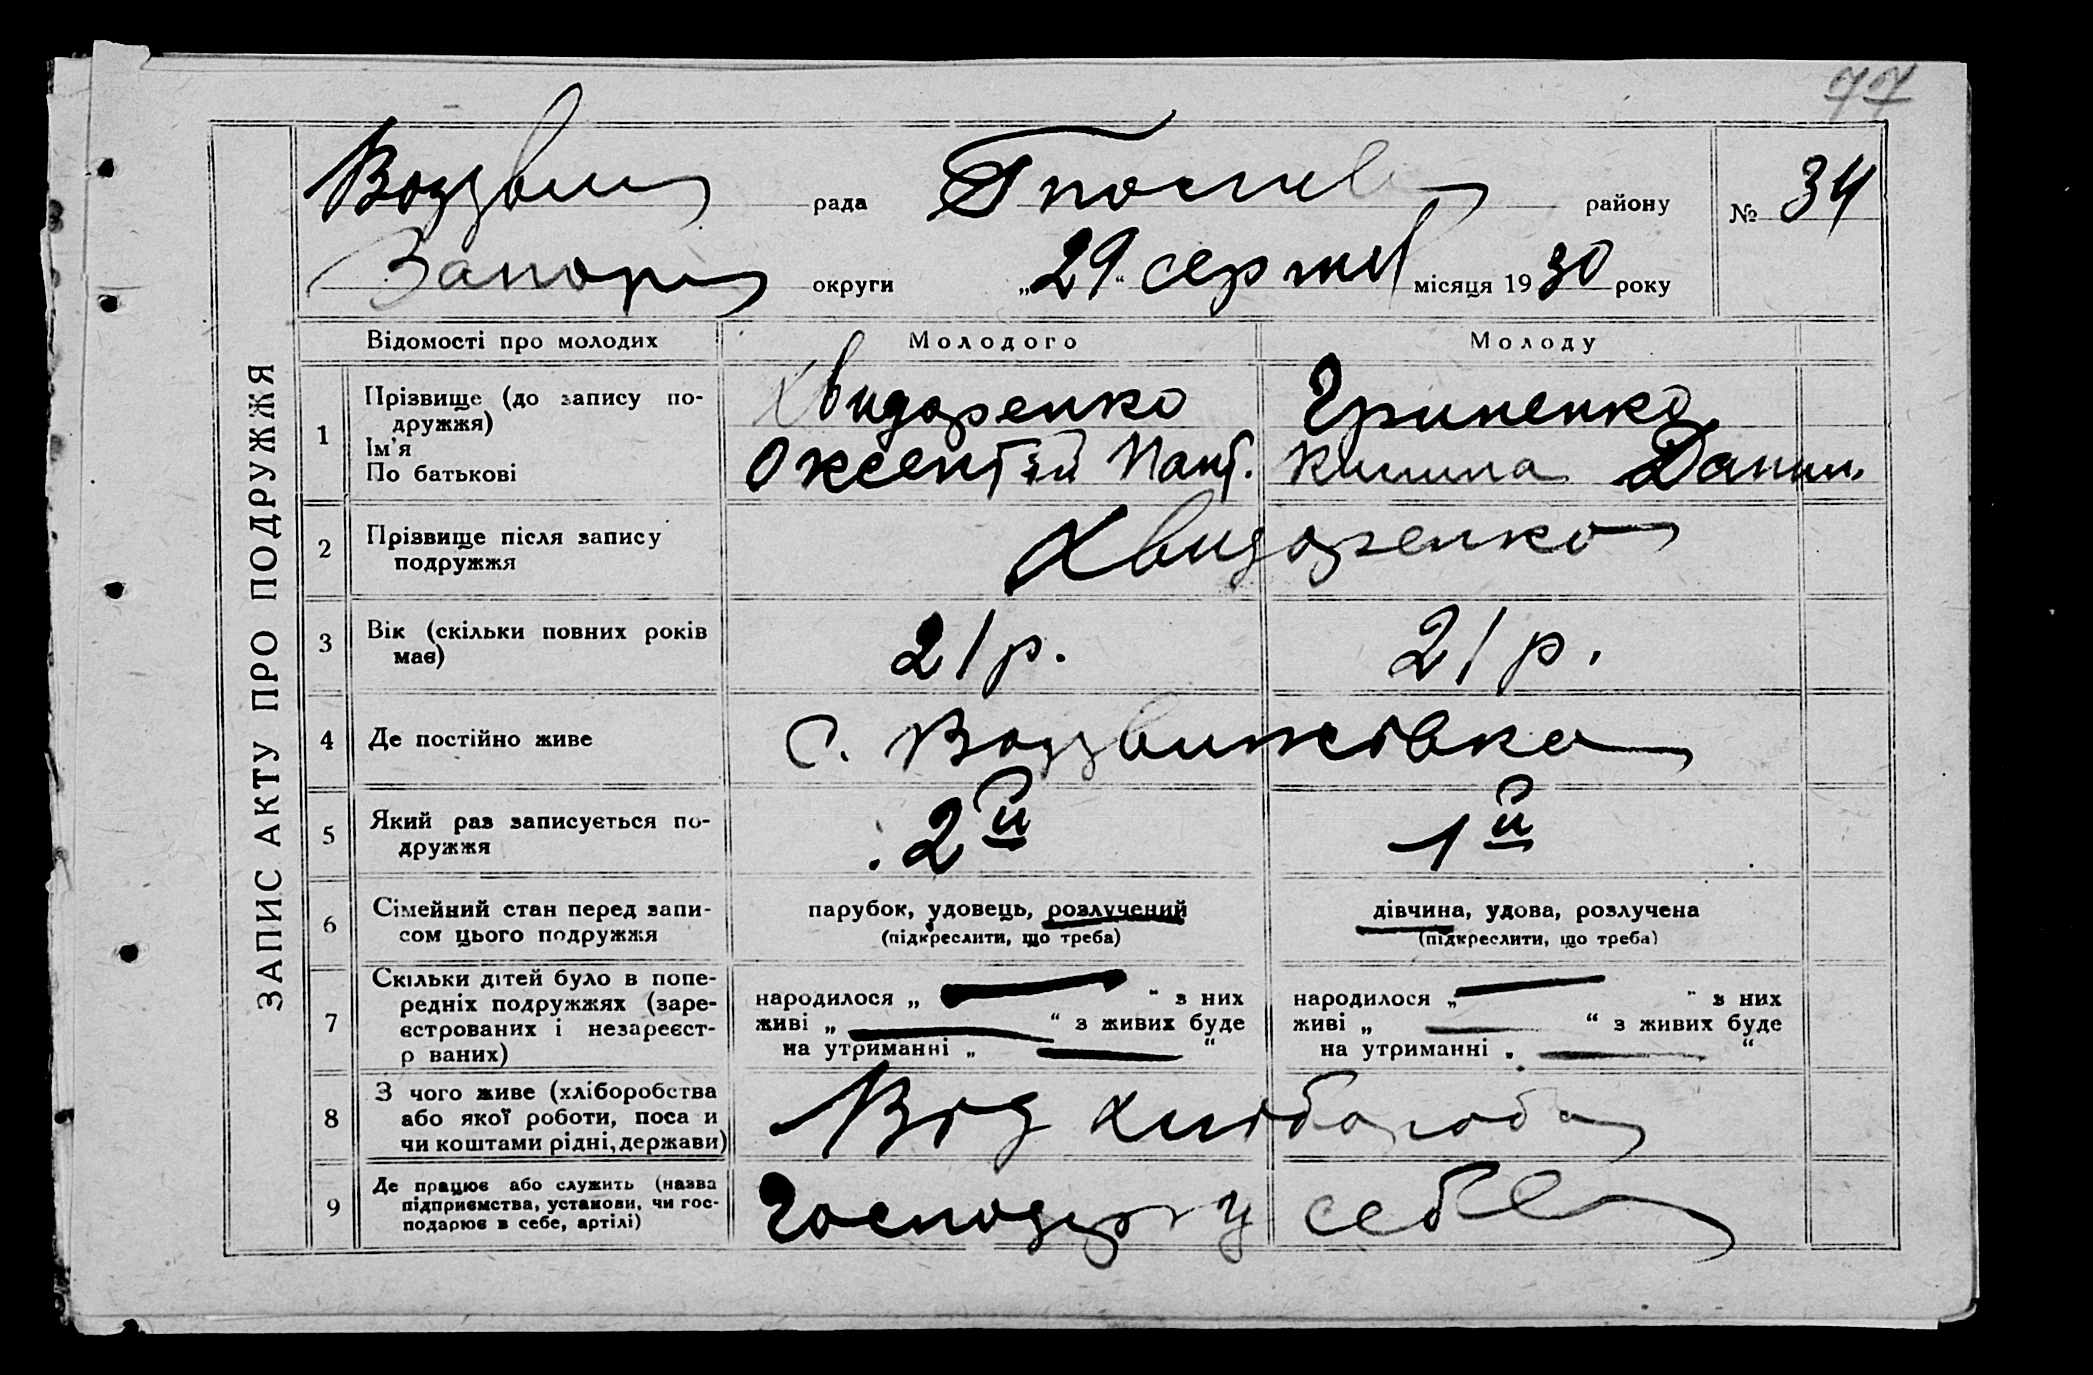 77
ЗАПИС АКТУ ПРО ПОДРУЖЖЯ
рада району № 34
Запор округи „29“ серпня місяця 1930 року
Відомості про молодих Молодого Молоду
1 Прізвище (до запису по-
дружжя)
Ім'я
По батькові
Хвидоренко Гриненко
Оксентій Пант. Килина Данил.
2 Прізвище після запису
подружжя
Хвидоренко
3 Вік (скільки повних років
має)
21 р. 21 р.
4 Де постійно живе с. Воздвижівка
5 Який раз записується по-
дружжя
2й 1й
6 Сімейний стан перед запи-
сом цього подружжя
парубок, удовець, розлучений дівчина, удова, розлучена
(підкреслити, що треба) (підкреслити, що треба)
7 Скільки дітей було в попе-
редніх подружжях (заре-
єстрованих і незареєст-
р ваних)
народилося „ — “ з них народилося „ — “ з них
живі „ — “ з живих буде живі „ — “ з живих буде
на утриманні „ — “ на утриманні „ — “
8 З чого живе (хліборобства
або якої роботи, поса и
чи коштами рідні, держави)
Від хлібороба
9 Де працює або служить (назва
підприємства, установи, чи гос-
подарює в себе, артілі)
Господар у себе